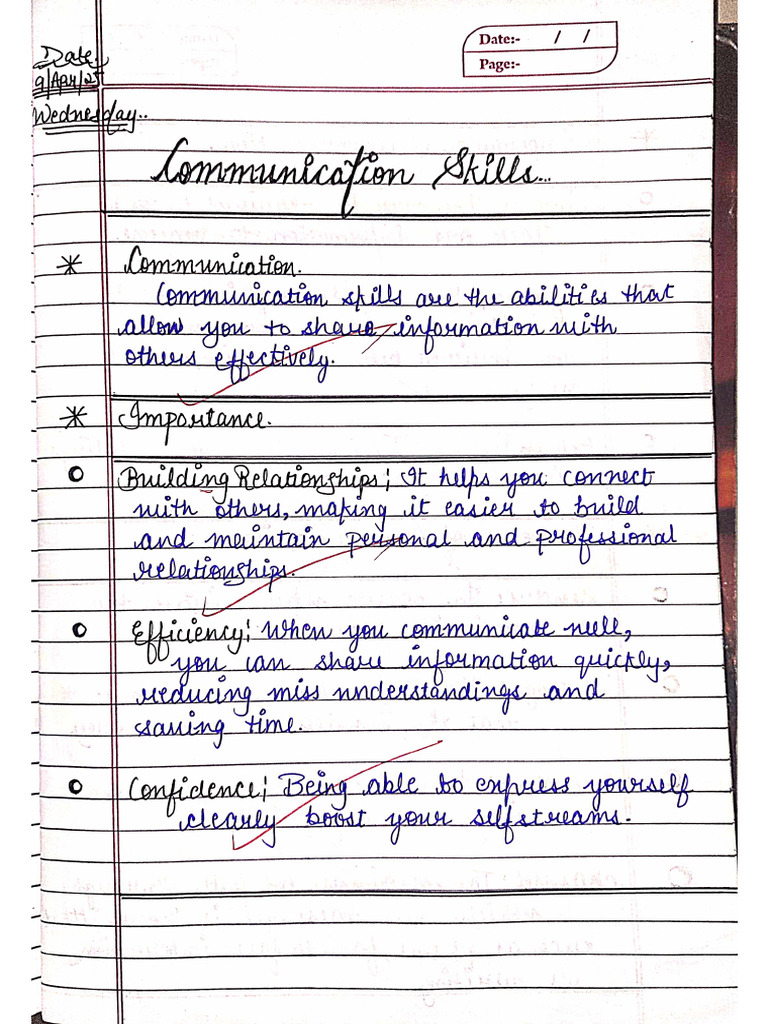 Date:- / /
Page:-
Date.
9/Apr/25
Wednesday..
Communication Skills...
* Communication.
Communication skills are the abilities that
allow you to share information with
others effectively.
* Importance.
Building Relationships: It helps you connect
with others, making it easier to build
and maintain personal and professional
relationships.
Efficiency: When you communicate well,
you can share information quickly,
reducing miss understandings and
saving time.
Confidence: Being able to express yourself
clearly boost your selfstreams.